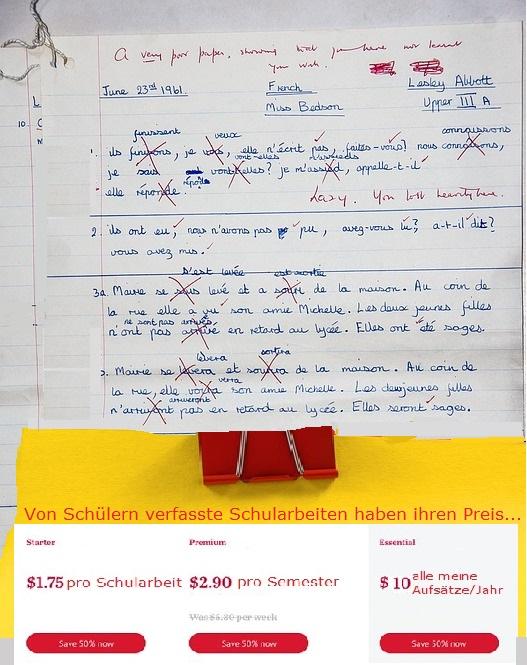 A very poor paper, showing that you have not learnt
your work.
June 23rd 1961.
French
Lesley Abbott
Miss Bedson
Upper III A
L
10.
finissent
veux
connaissons
1. ils finissons, je vois, elle n'écrit pas, faites-vous? nous connaisons,
vont-elles
m'assieds
je sais vont-elles? je m'assied, appelle-t-il
répond
elle réponde.
Lazy. You lost heavily here.
2. ils ont eu, nous n'avons pas pu, avez-vous lu? a-t-il dit?
vous avez mis.
s'est levée
est sortie
3a. Marie se levé et a sorti de la maison. Au coin de
la rue elle a vu son amie Michelle. Les deux jeunes filles
ne sont pas arrivés
n'ont pas arrivé en retard au lycée. Elles ont été sages.
lèvera
sortira
Marie se levera et de la maison. Au coin de
verra
la rue, elle voira son amie Michelle. Les deux jeunes filles
arriveront
n'arriront pas en retard au lycée. Elles seront sages.
Von Schülern verfasste Schularbeiten haben ihren Preis...
Starter
Premium
Essential
$1.75 pro Schularbeit
$2.90 pro Semester
$10 alle meine
Aufsätze/Jahr
Was $5.80 per week
Save 50% now
Save 50% now
Save 50% now